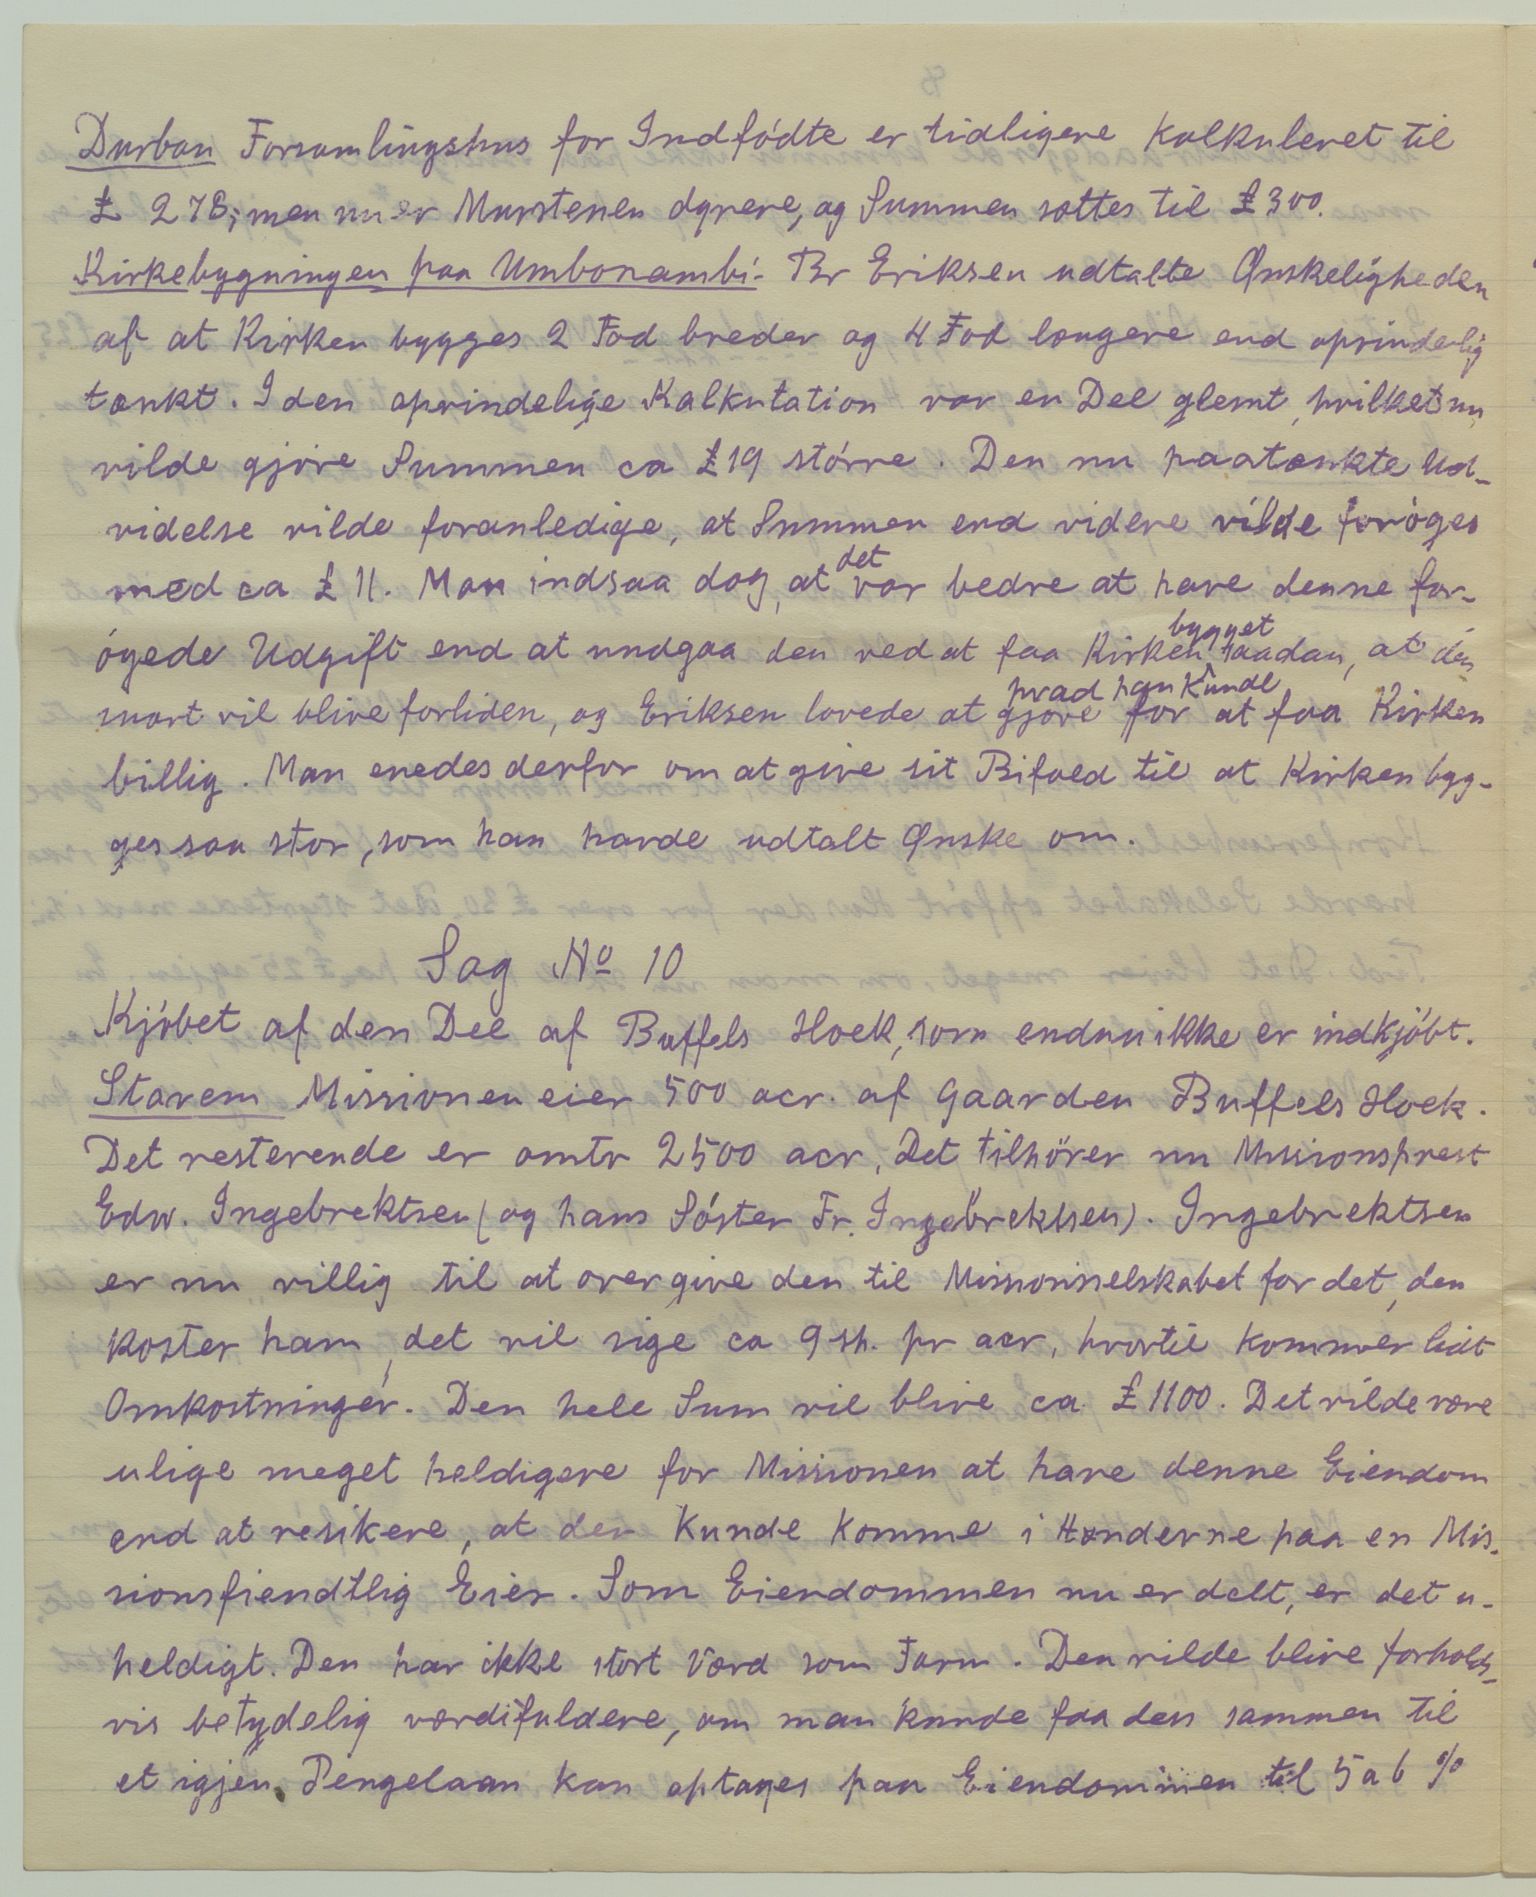 Durban Forsamlingshus for Indfødte er tidligere kalkuleret til
£ 278; men nu er Murstenen dyrere, og Summen sættes til £300.
Kirkebygningen paa Umbonambi- Br Eriksen udtalte Ønskeligheden
af at Kirken bygges 2 Fod breder og 4 Fod længere end oprindelig
tænkt. I den oprindelige Kalkutation var en Del glemt, hvilket nu
vilde gjøre Summen ca £19 større. Den nu paatænkte Ud-
videlse vilde foranledige, at Summen end videre vilde forøges
med ca £ 11. Man indsaa dog, at det var bedre at have denne for-
øgede Udgift end at undgaa den ved at faa Kirken bygget saadan, at den
snart vil blive forliden, og Eriksen lovede at gjøre hvad han kunde for at faa Kirken
billig. Man enedes derfor om at give sit Bifald til at Kirken byg-
ges saa stor, som han havde udtalt Ønske om.
Sag No 10
Kjøbet af den Del af Buffels Hoek, som endnu ikke er indkjøbt.
Stavem Missionen eier 500 acr. af Gaarden Buffels Hoek.
Det resterende er omtr 2500 acr, det tilhører nu Missionsprest
Edw. Ingebrektsen (og hans Søster Fr. Ingebrektsen). Ingebrektsen
er nu villig til at overgive den til Missionsselskabet for det, den
koster ham, det vil sige ca 9 sh. pr acr, hvortil kommer lidt
Omkostninger. Den hele Sum vil blive ca £1100. Det vilde være
ulige meget heldigere for Missionen at have denne Eiendom
end at resikere, at den kunde komme i Hænderne paa en Mis-
sionsfiendtlig Eier. Som Eiendommen nu er delt, er det u-
heldigt. Den har ikke stort Værd som Farm. Den vilde blive forholds-
vis betydelig værdifuldere, om man kunde faa den sammen til
et igjen. Pengelaan kan optages paa Eiendommen til 5 a 6 %